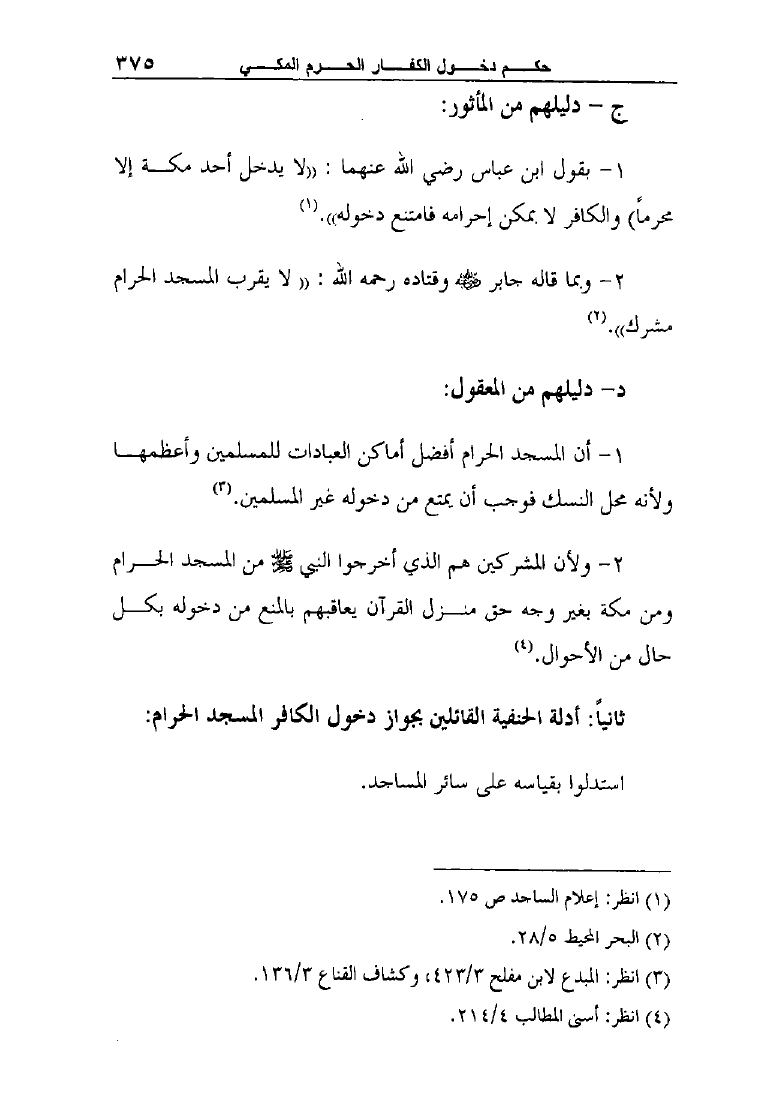 حكم دخول الكفار الحرم المكي ٣٧٥
ج – دليلهم من المأثور:
١- بقول ابن عباس رضي الله عنهما : ((لا يدخل أحد مكة إلا
محرماً) والكافر لا يمكن إحرامه فامتنع دخوله)).(١)
٢- وبما قاله جابر ﷺ وقتاده رحمه الله : (( لا يقرب المسجد الحرام
مشرك)).(٢)
د- دليلهم من المعقول:
١- أن المسجد الحرام أفضل أماكن العبادات للمسلمين وأعظمها
ولأنه محل النسك فوجب أن يمتع من دخوله غير المسلمين.(٣)
٢- ولأن المشركين هم الذي أخرجوا النبي ﷺ من المسجد الحرام
ومن مكة بغير وجه حق منزل القرآن يعاقبهم بالمنع من دخوله بكل
حال من الأحوال.(٤)
ثانياً: أدلة الحنفية القائلين بجواز دخول الكافر المسجد الحرام:
استدلوا بقياسه على سائر المساجد.
(١) انظر: إعلام الساجد ص ١٧٥.
(٢) البحر المحيط ٢٨/٥.
(٣) انظر: المبدع لابن مفلح ٤٢٣/٣، وكشاف القناع ١٣٦/٣.
(٤) انظر: أسنى المطالب ٢١٤/٤.